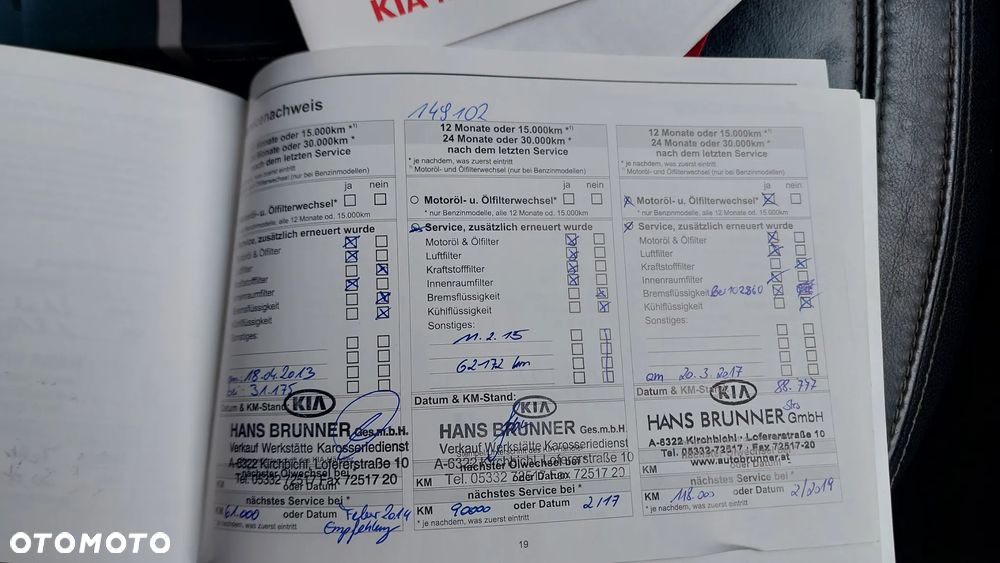 KIA
nachweis
149102
Monate oder 15.000km *¹⁾
Monate oder 30.000km *
nach dem letzten Service
zuerst eintritt
Ölfilterwechsel (nur bei Benzinmodellen)
ja nein
Motoröl- u. Ölfilterwechsel*
* nur Benzinmodelle, alle 12 Monate od. 15.000km
Service, zusätzlich erneuert wurde
Motoröl & Ölfilter
Innenraumfilter
Bremsflüssigkeit
Kühlflüssigkeit
Sonstiges:
am: 18.04.2013
bei 31.175
Datum & KM-Stand:
KIA
HANS BRUNNER Ges.m.b.H.
Verkauf Werkstätte Karosseriedienst
A-6322 Kirchbichl, Lofererstraße 10
nächster Ölwechsel bei
Tel. 05332 72517 Fax 72517 20
oder Datum
nächstes Service bei *
KM 61.000 oder Datum Feber 2014
Empfehlung
* je nachdem, was zuerst eintritt
12 Monate oder 15.000km *¹⁾
24 Monate oder 30.000km *
nach dem letzten Service
* je nachdem, was zuerst eintritt
¹⁾ Motoröl- und Ölfilterwechsel (nur bei Benzinmodellen)
ja nein
Motoröl- u. Ölfilterwechsel*
* nur Benzinmodelle, alle 12 Monate od. 15.000km
Service, zusätzlich erneuert wurde
Motoröl & Ölfilter
Luftfilter
Kraftstofffilter
Innenraumfilter
Bremsflüssigkeit
Kühlflüssigkeit
Sonstiges:
11.2.15
62172 km
Datum & KM-Stand:
KIA
HANS BRUNNER Ges.m.b.H.
Verkauf Werkstätte Karosseriedienst
A-6322 Kirchbichl, Lofererstraße 10
nächster Ölwechsel bei
KM Tel. 05332 72517 Fax 72517 20
oder Datum
nächstes Service bei *
KM 90000 oder Datum 2/17
* je nachdem, was zuerst eintritt
12 Monate oder 15.000km *¹⁾
24 Monate oder 30.000km *
nach dem letzten Service
* je nachdem, was zuerst eintritt
¹⁾ Motoröl- und Ölfilterwechsel (nur bei Benzinmodellen)
ja nein
Motoröl- u. Ölfilterwechsel*
* nur Benzinmodelle, alle 12 Monate od. 15.000km
Service, zusätzlich erneuert wurde
Motoröl & Ölfilter
Luftfilter
Kraftstofffilter
Innenraumfilter
Bremsflüssigkeit Bei 102860
Kühlflüssigkeit
Sonstiges:
am 20.3.2017
Datum & KM-Stand
88.747
KIA
HANS BRUNNER GmbH
A-6322 Kirchbichl · Lofererstraße 10
Tel. 05332-72517 / Fax 72517-20
www.autobrunner.at
KM oder Datum
nächstes Service bei *
KM 118.000 oder Datum 2/2019
* je nachdem, was zuerst eintritt
19
OTOMOTO